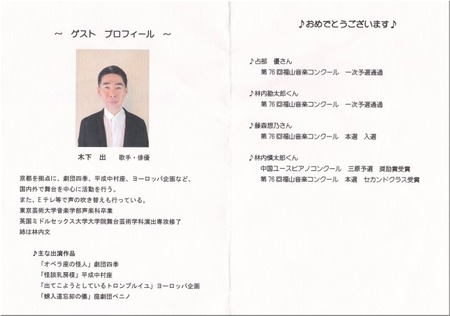 ～ ゲスト プロフィール ～
木下 出 歌手・俳優
京都を拠点に、劇団四季、平成中村座、ヨーロッパ企画など、
国内外で舞台を中心に活動を行う。
また、Eテレ等で声の吹き替えも行っている。
東京芸術大学音楽学部声楽科卒業
英国ミドルセックス大学大学院舞台芸術学科演出専攻修了
姉は林内文
♪主な出演作品
「オペラ座の怪人」劇団四季
「怪談乳房榎」平成中村座
「出てこようとしているトロンプルイユ」ヨーロッパ企画
「蟻入道忘却の儀」庭劇団ペニノ
♪おめでとうございます♪
♪占部 優さん
第76回福山音楽コンクール 一次予選通過
♪林内勘太郎くん
第76回福山音楽コンクール 一次予選通過
♪藤森想乃さん
第76回福山音楽コンクール 本選 入選
♪林内慎太郎くん
中国ユースピアノコンクール 三原予選 奨励賞受賞
第76回福山音楽コンクール 本選 セカンドクラス受賞